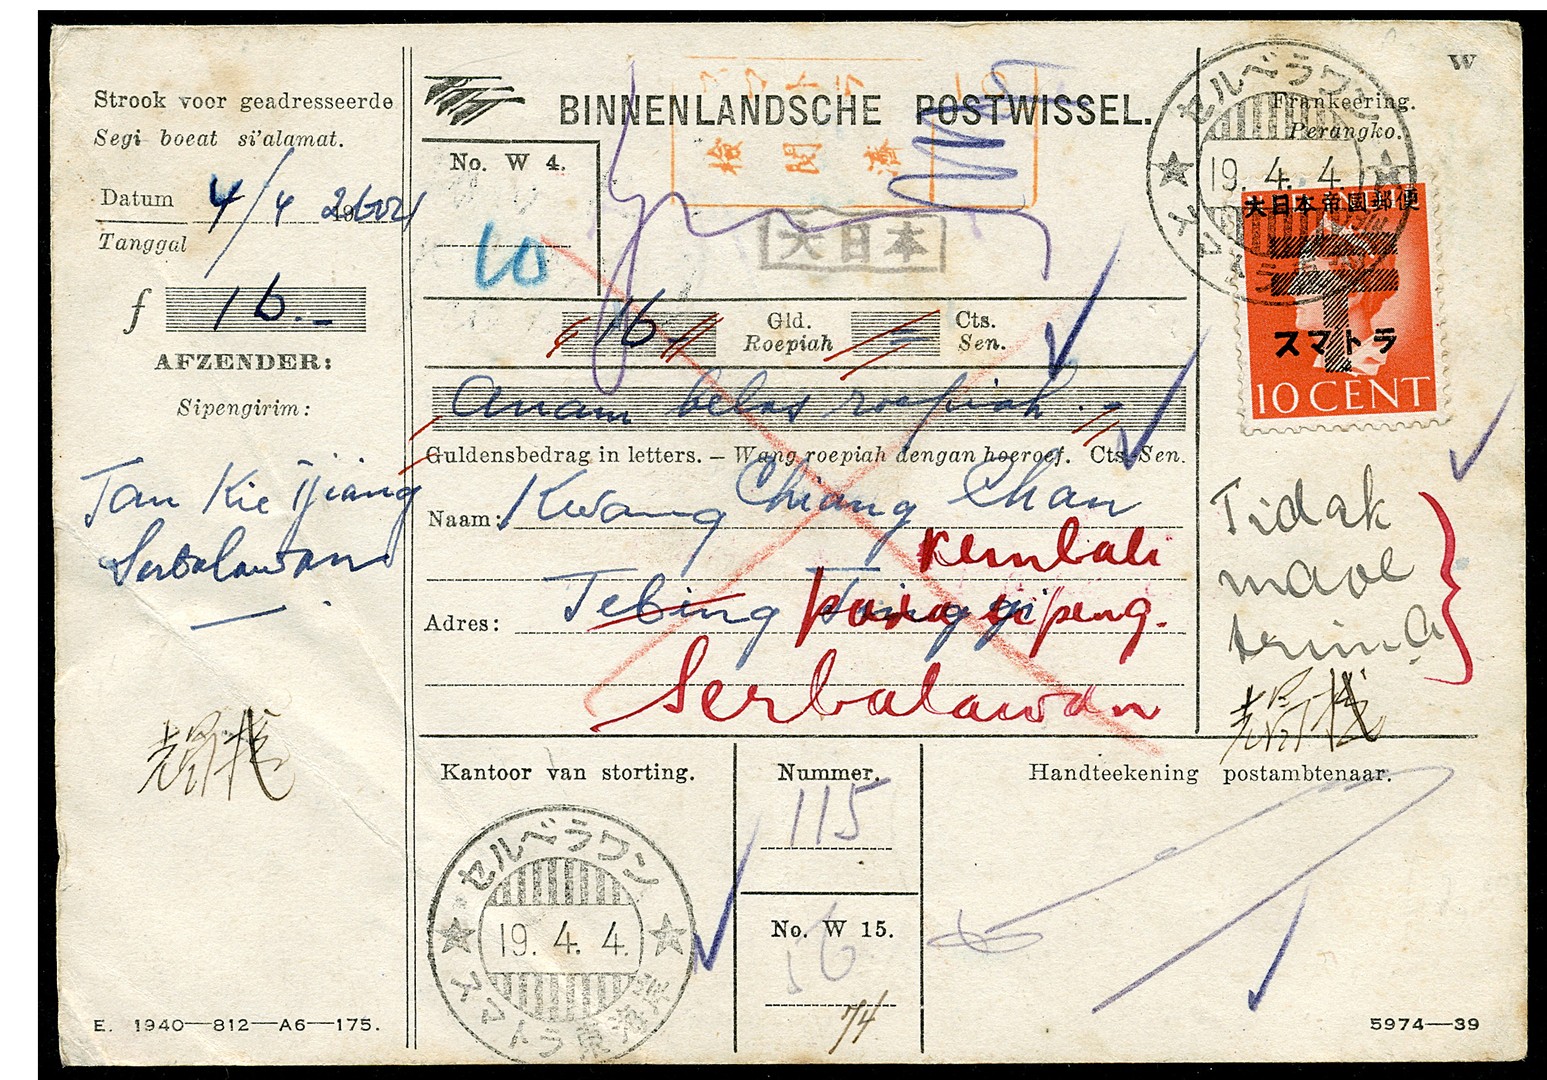 Strook voor geadresseerde
Segi boeat si'alamat.
Datum 4/4 2604
Tanggal
f 16.-
AFZENDER:
Sipengirim:
Tan Kie Tjiang
Serbalawan
E. 1940—812—A6—175.
BINNENLANDSCHE POSTWISSEL.
No. W 4.
10
検閲濟
大日本
16 Gld. Cts.
Roepiah Sen.
Anam belas roepiah.-
Guldensbedrag in letters. – Wang roepiah dengan hoeroef. Cts-Sen.
Naam: Kwang Chiang Chan
Kembali
Adres: Tebing Tinggi
pada sipeng.
Serbalawan
Kantoor van storting.
セルベラワン
19. 4. 4.
スマトラ東海岸
Nummer.
115
No. W 15.
74
Handteekening postambtenaar.
5974—39
W
Frankeering.
Perangko.
セルベラワン
19. 4. 4
大日本帝國郵便
スマトラ
10 CENT
Tidak
maoe
terima